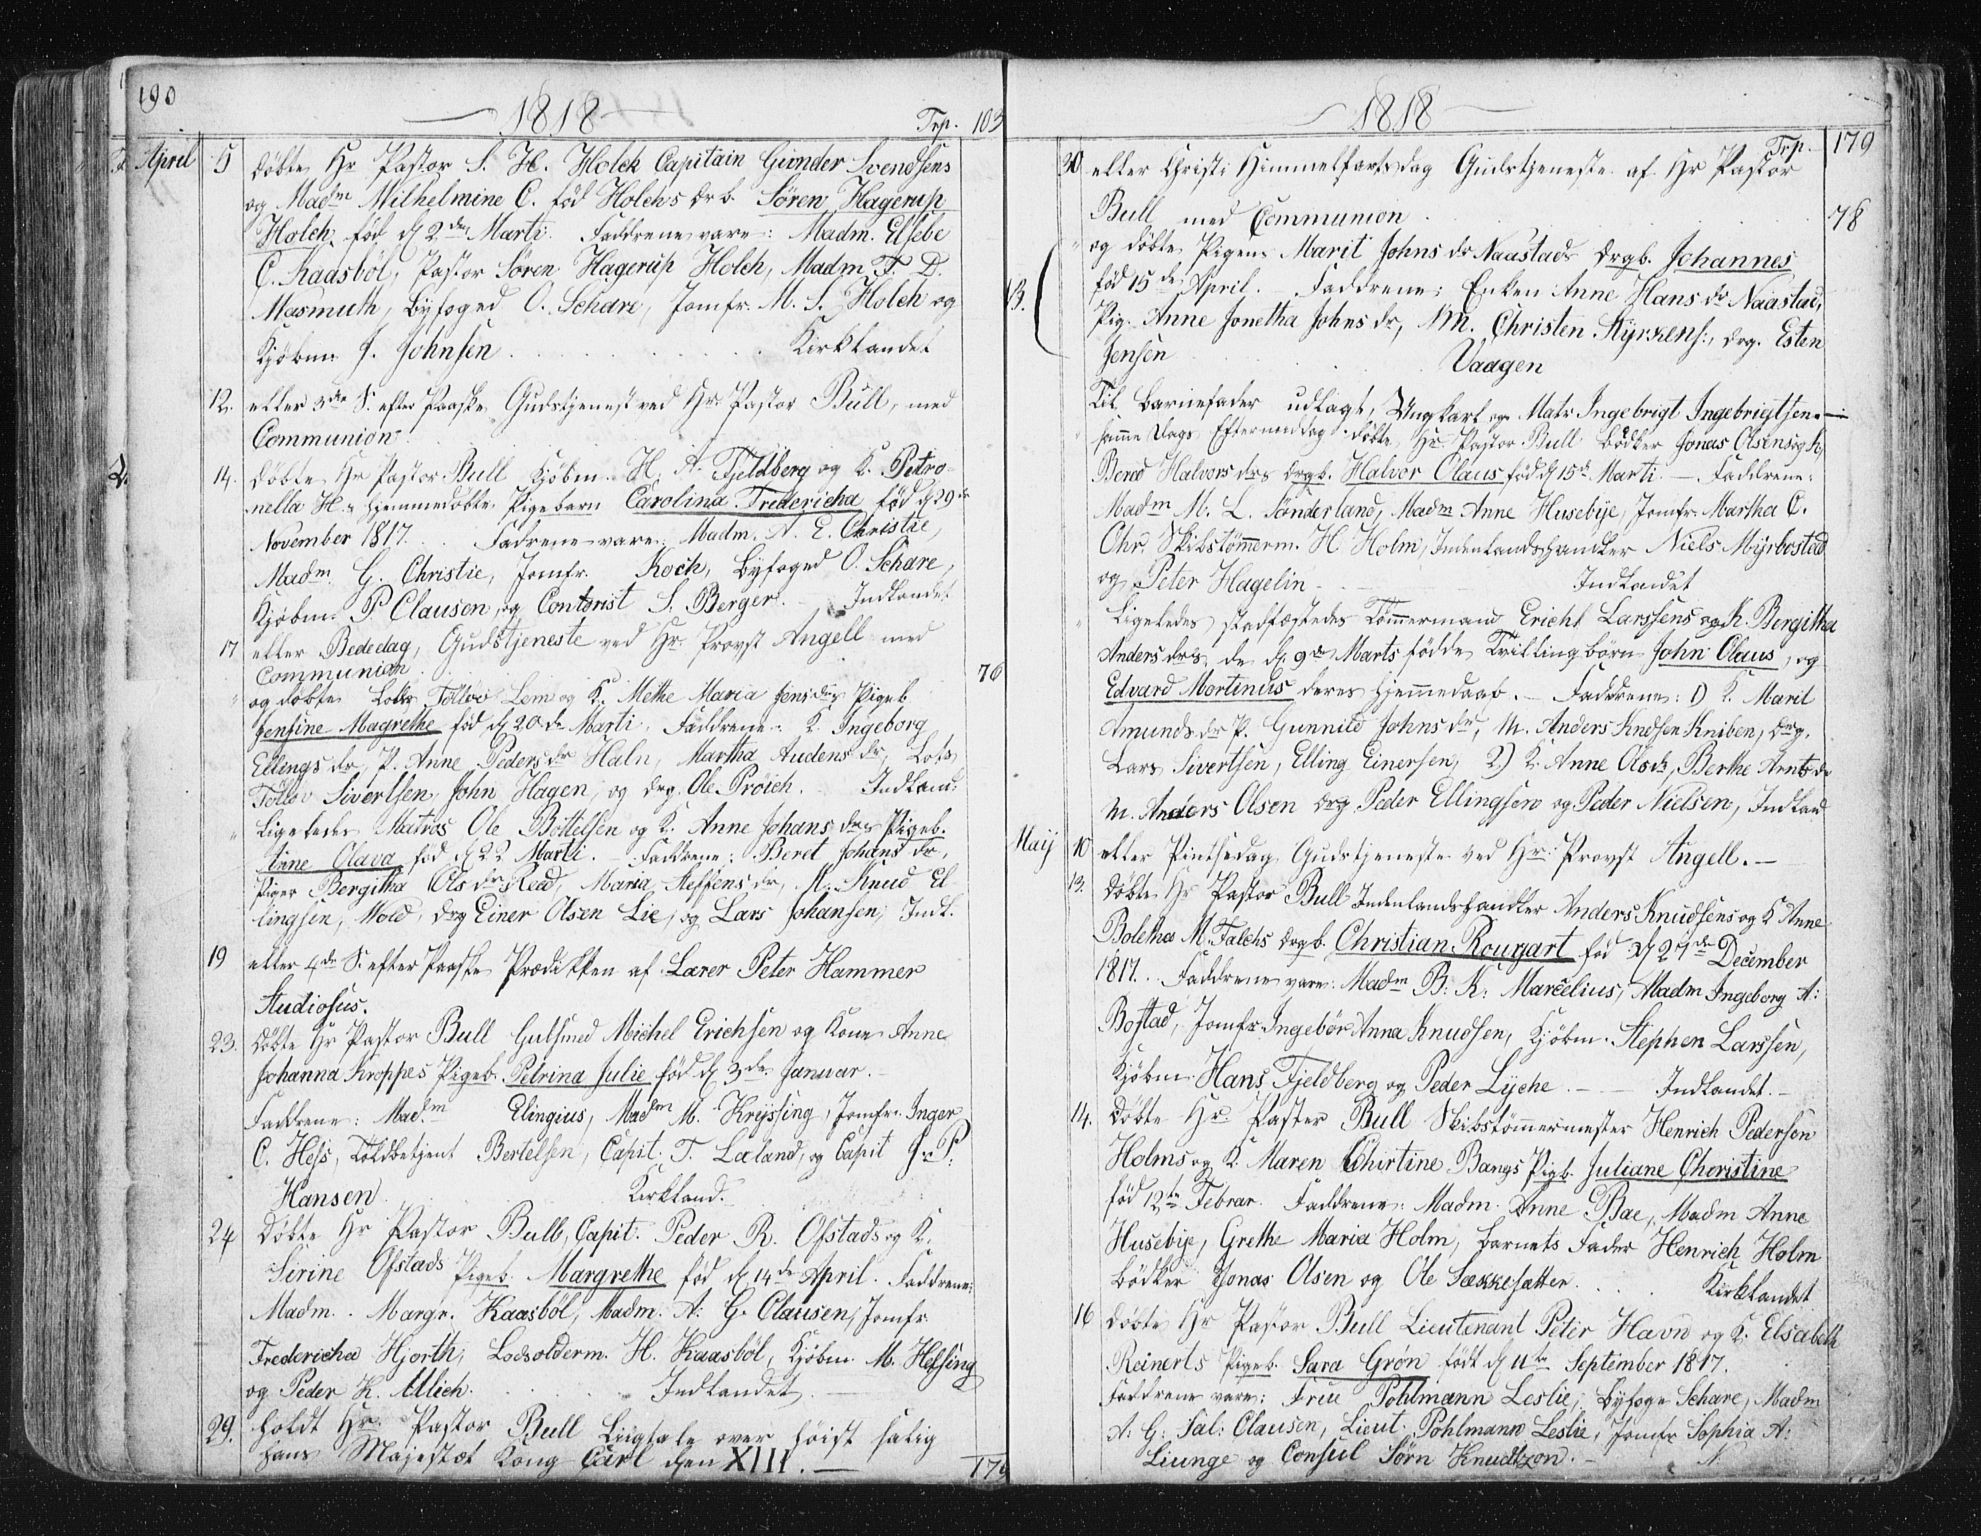 190
1818
Trp. 103
April 5 døbte Hr Pastor S. H. Holck Capitain Günder Svendsens
og Madm Wilhelmine C. föd Holchs drb. Sören Hagerup
Holch, föd d 2den Marti. Faddrene vare: Madm. Elsebe
C. Kaasböl, Pastor Sören Hagerup Holch, Madm F. D.
Masmuth, byfoged O. Schare, Jomfr. M. S. Holch og
Kjöbm. J. Johnsen Kirklandet
12. eller 3die S. efter Paaske Gudstjenest ved Hr. Pastor Bull, med
Communion
14. döbte Hr Pastor Bull Kjöbm. H. A. Fjeldberg og K. Petro-
nella H. hjemmedöbte Pigebarn Carolina Fredericha föd d 29de
November 1817. Fadrene vare: Madm. A. E. Christie,
Madm. G. Christie, Jomfr. Koch, byfoged O. Schare,
Kjöbm. P Clauson, og Contorist S. Berger. Indlandet
17 eller Bededag, Gudstjeneste ved Hr. Provst Angell med
Communion 76
og döbte Lods Tölløv Lem og K. Methe Maria Jens drs Pigeb.
Jensine Magrethe föd d 20de Marti. Faddrene: K. Ingeborg
Ellings dr, P. Anne Peders dr Haln, Martha Audens dr, Lods
Tölløv Sivertsen, John Hagen, og drg. Ole Pröich. Indland.
Ligeledes Matros Ole Böttelsen og K. Anne Johans drs Pigeb.
Anne Olava föd d 22 Marti. Faddrene: Beret Johans dr,
Piger Bergitha Ols dr Read, Maria Steffens dr, M. Knud El-
lingsen, Wold, drg Einer Olsen Lie, og Lars Johansen, Indl.
19 eller 4de S. efter Paaske Prædikken af Lærer Peter Hammer
Studiosus.
23. döbte Hr Pastor Bull Gulsmed Michel Erichsen og Kone Anne
Johanna Kroppes Pigeb. Petrina Julie föd d 3de Januar.
Faddrene: Madm Elingius, Madm M. Kreysing, Jomfr. Inger
C. Hess, Toldbetjent Bertelsen, Capit. T. Lœland, og Capit J. P.
Hansen Kirkland.
24 Döbte Hr Pastor Bull, Capit. Peder R. Ofstads og K.
Sirine Ofstads Pigeb. Margrethe föd d 14de April. Faddrene:
Madm. Margr. Kaasböl, Madm. A: G. Clausen, Jomfr.
Fredericha Hjorth, Lodsolderm. H. Kaasböl, Kjöbm. M. Hessing
og Peder K. Ulich. Indlandet.
29. holdt Hr. Pastor Bull Liigtale over höist salig
hans Majestæt Kong Carl den XIII.
179
1818
Trp. 179
30 eller Christi Himmelfartsdag Gudstjeneste af Hr Pastor
Bull med Communion 78
og döbte Pigen Marit Johns dr Naastads drgb. Johannes
föd 15de April. Faddrene: Enken Anne Hans dr Naastad,
Pig. Anne Jonetha Johns dr, M. Christen Styrkens:, drg. Esten
Jensen Vaagen
Til Barnefader udlagt, Ungkarl og Matr Ingebrigt Ingebrigtsen.
samme Dags Eftermiddag döbte Hr. Pastor Bull bödker Jonas Olsens og K.
Bered Halvors drs drgb. Halvor Olaus föd d 15de Marti. Faddrene:
Madm M. L. Sönderland, Madm Anne Husebye, Jomfr. Martha C.
Chr. Skibstömmerm. H. Holm, Indenlandshandler Niels Myrbostad
og Peter Hagelin Indlandet
Ligeledes stadfæstedes Tömmermand Ericht Larssens og K. Bergitha
Anders drs de d. 9de Marts födde Tvillingbörn John Olaus, og
Edvard Mortinus deres hjemmedaab. Faddrene: 1) K. Marit
Amunds dr P. Gunnild Johns dr, M. Anders Knudsen Kniben, drg.
Lars Sivertsen, Elling Einersen, 2) K. Anne Ols dr, Berthe Arnts dr
M. Anders Olsen drg Peder Ellingsen og Peder Nielsen, Indland
Maij 10 eller Pintsedag Gudstjeneste ved Hr. Provst Angell.
13. döbte Hr Pastor Bull Indenlandshandler Anders Knudsens og K Anne
Boletha M. Falchs drgb. Christian Rougart föd d 27de December
1817. Faddrene vare: Madm B. K: Marcelius, Madm Ingeborg A:
Bostad, Jomfr. Ingebör Anna Knudsen, Kjöbm. Stephen Larssen,
Kjöbm. Hans Fjeldberg og Peder Lyche. Indlandet.
14. döbte Hr. Pastor Bull Skibstömmermester Henrich Pedersen
Holms og K. Maren Chirtine Bangs Pigb. Juliane Christine
föd 12te Febrar. Faddrene: Madm. Anne Bae, Madm Anne
Husebye, Grethe Maria Holm, barnets Fader Henrich Holm
bödker Jonas Olsen og Ole Sækkesætter. Kirklandet
16 döbte Hr Pastor Bull Lieutenant Peter Havn og K. Elsabeth
Reinerts Pigeb. Sara Grön födt d 11te September 1817.
Faddrene vare: Frue Pohlmann Leslie, byfoge Schare, Madm
A: G: Sal: Clausen, Lieut. Pohlmann Leslie, Jomfr Sophia A:
Liunge og Consul Sörn Knudtzon. N.